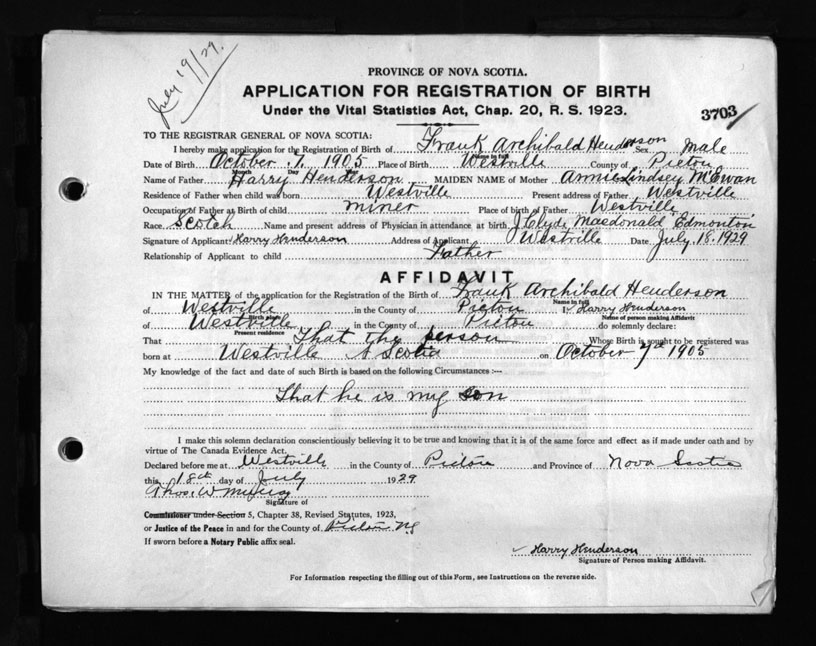 July 19/29.
PROVINCE OF NOVA SCOTIA.
APPLICATION FOR REGISTRATION OF BIRTH
Under the Vital Statistics Act, Chap. 20, R. S. 1923.
3703
TO THE REGISTRAR GENERAL OF NOVA SCOTIA:
I hereby make application for the Registration of Birth of Frank Archibald Henderson Sex Male
Name in full
Date of Birth October 7 1905 Place of Birth Westville County of Pictou
Month Day Year
Name of Father Harry Henderson MAIDEN NAME of Mother Annie Lindsey McEwan
Residence of Father when child was born Westville Present address of Father Westville
Occupation of Father at Birth of child miner Place of birth of Father Westville
Race Scotch Name and present address of Physician in attendance at birth J Clyde Macdonald Edmonton
Signature of Applicant Harry Henderson Address of Applicant Westville Date July 18 1929
Relationship of Applicant to child Father
AFFIDAVIT
IN THE MATTER of the application for the Registration of the Birth of Frank Archibald Henderson
Name in full
of Westville in the County of Pictou I Harry Henderson
Birth place Name of person making Affidavit
of Westville in the County of Pictou do solemnly declare:
Present residence
That That the person Whose Birth is sought to be registered was
born at Westville N Scotia on October 7th 1905
My knowledge of the fact and date of such Birth is based on the following Circumstances :—
That he is my son
I make this solemn declaration conscientiously believing it to be true and knowing that it is of the same force and effect as if made under oath and by
virtue of The Canada Evidence Act.
Declared before me at Westville in the County of Pictou and Province of Nova Scotia
this 18th day of July 1929
Thos. W
Signature of
Commissioner under Section 5, Chapter 38, Revised Statutes, 1923,
or Justice of the Peace in and for the County of Pictou NS
If sworn before a Notary Public affix seal.
Harry Henderson
Signature of Person making Affidavit.
For Information respecting the filling out of this Form, see Instructions on the reverse side.